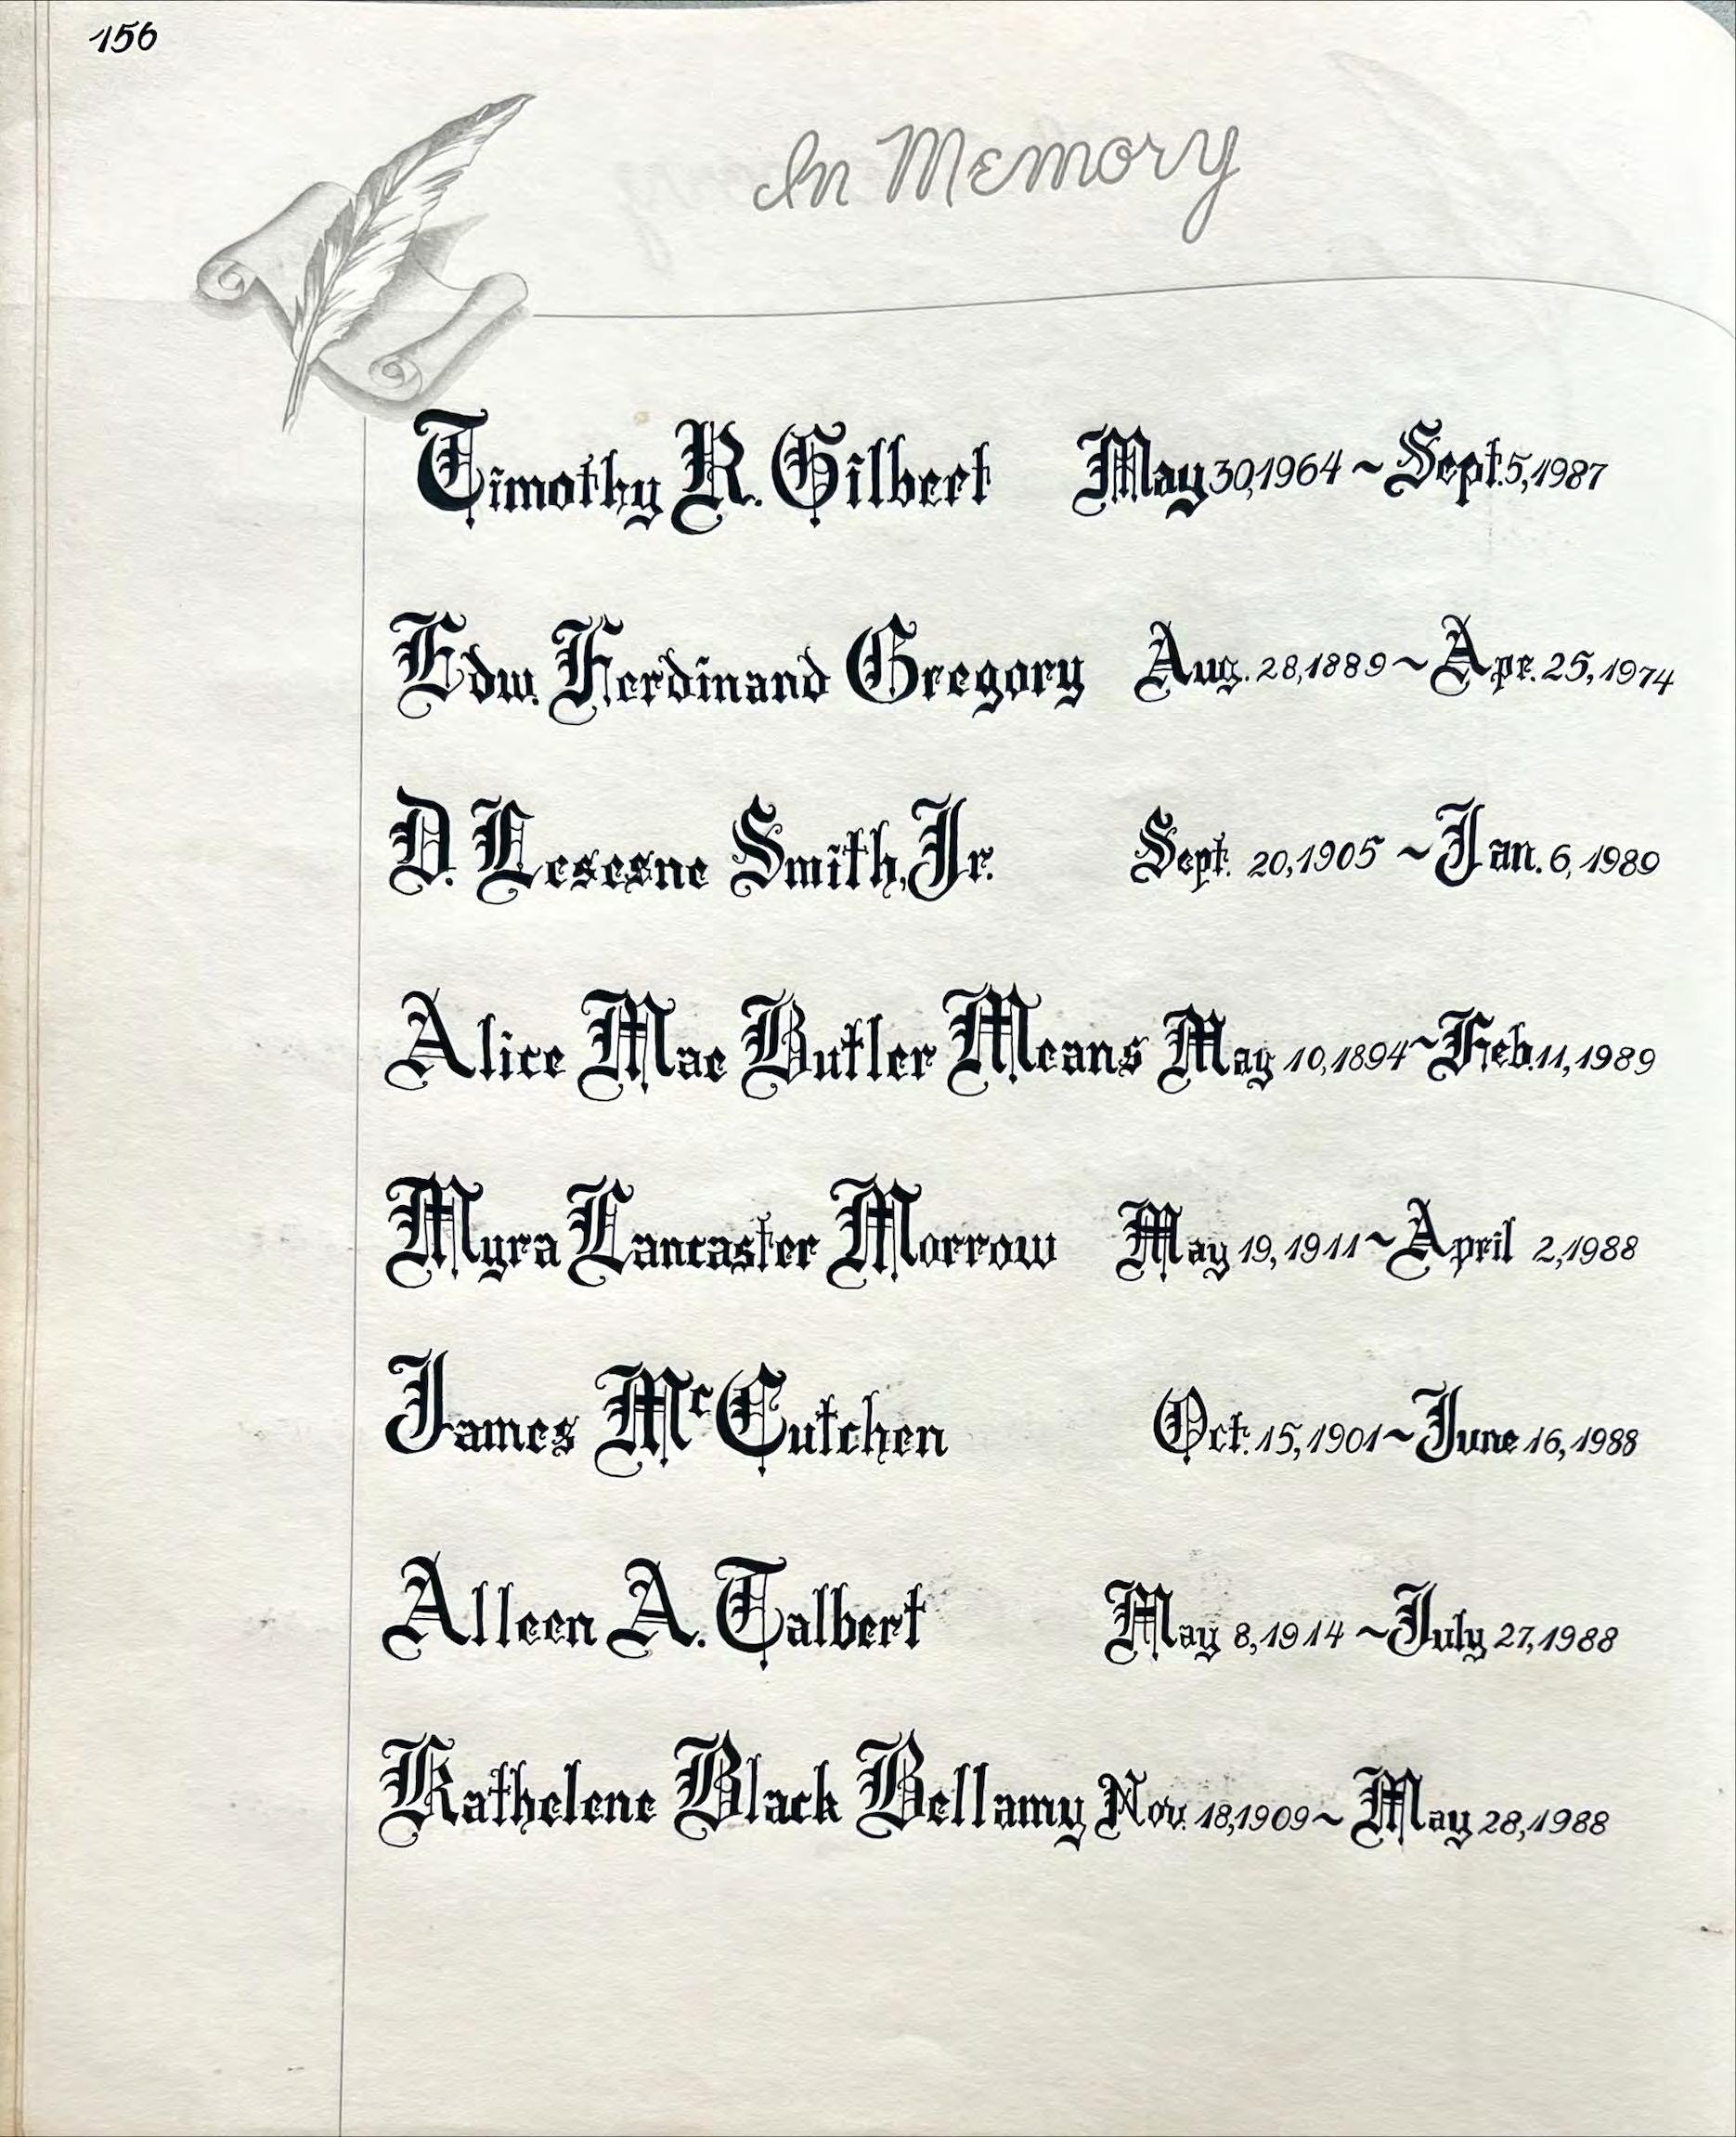 156
In Memory
Timothy R. Gilbert May 30, 1964 ~ Sept. 5, 1987
Edw. Ferdinand Gregory Aug. 28, 1889 ~ Apr. 25, 1974
D. Lesesne Smith, Jr. Sept. 20, 1905 ~ Jan. 6, 1989
Alice Mae Butler Means May 10, 1894 ~ Feb. 11, 1989
Myra Lancaster Morrow May 19, 1911 ~ April 2, 1988
James McCutchen Oct. 15, 1901 ~ June 16, 1988
Alleen A. Talbert May 8, 1914 ~ July 27, 1988
Kathelene Black Bellamy Nov. 18, 1909 ~ May 28, 1988